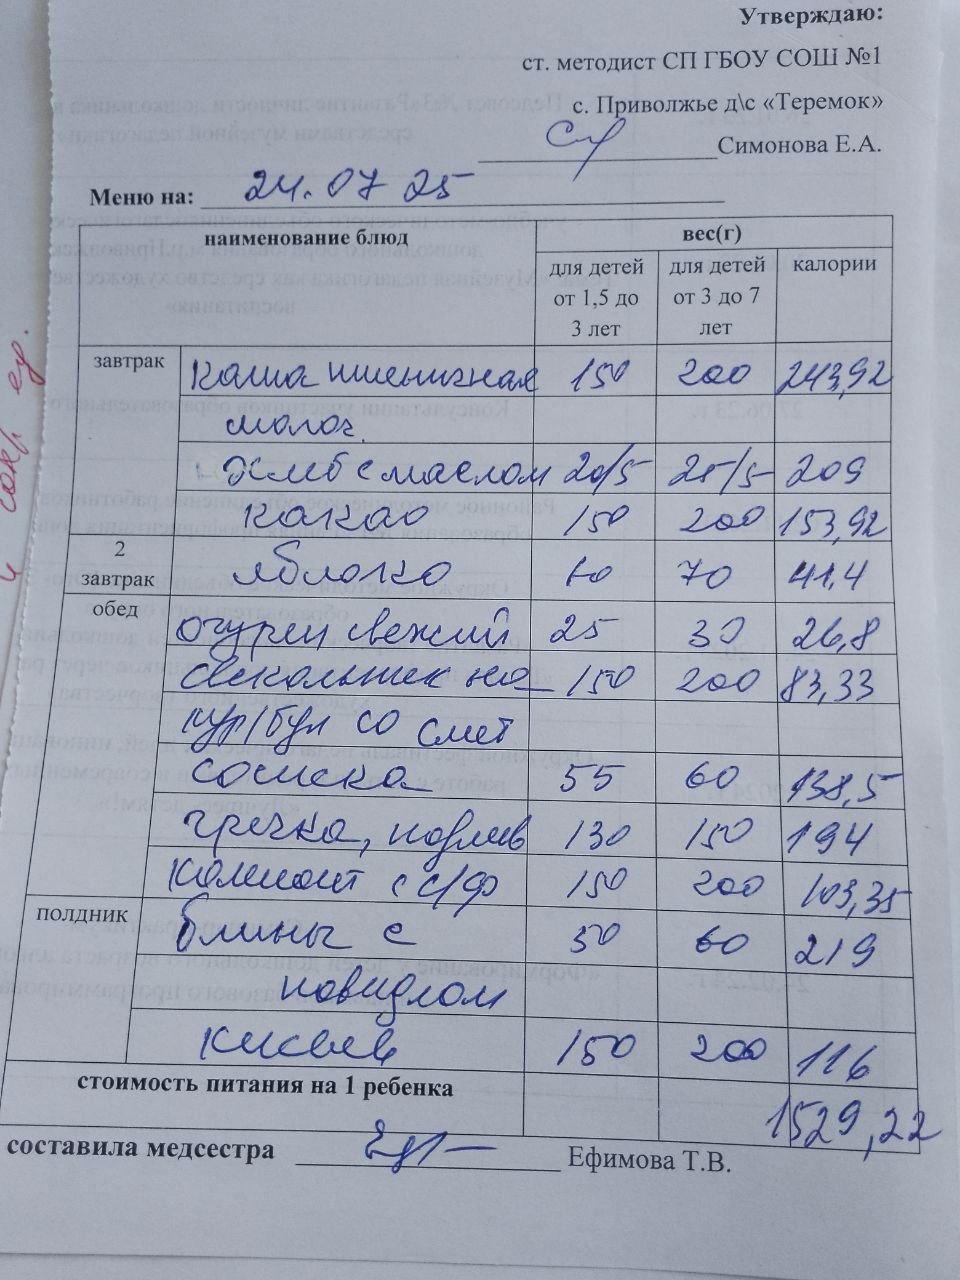 Утверждаю:
ст. методист СП ГБОУ СОШ №1
с. Приволжье д\с «Теремок»
Симонова Е.А.
Меню на: 24.07 25
наименование блюд вес(г)
для детей от 1,5 до 3 лет для детей от 3 до 7 лет калории
завтрак каша пшеничная 150 200 243,92
молоч.
хлеб с маслом 20/5 25/5 209
какао 150 200 153,92
2 завтрак яблоко 60 70 41.4
обед огурец свежий 25 30 26,8
свекольник на 150 200 83,33
кур/бул со смет
сосиска 55 60 138,5
гречка, подлив 130 150 194
компот с с/ф 150 200 103,35
полдник блины с 50 60 219
повидлом
кисель 150 200 116
стоимость питания на 1 ребенка 1529,22
составила медсестра Ефимова Т.В.